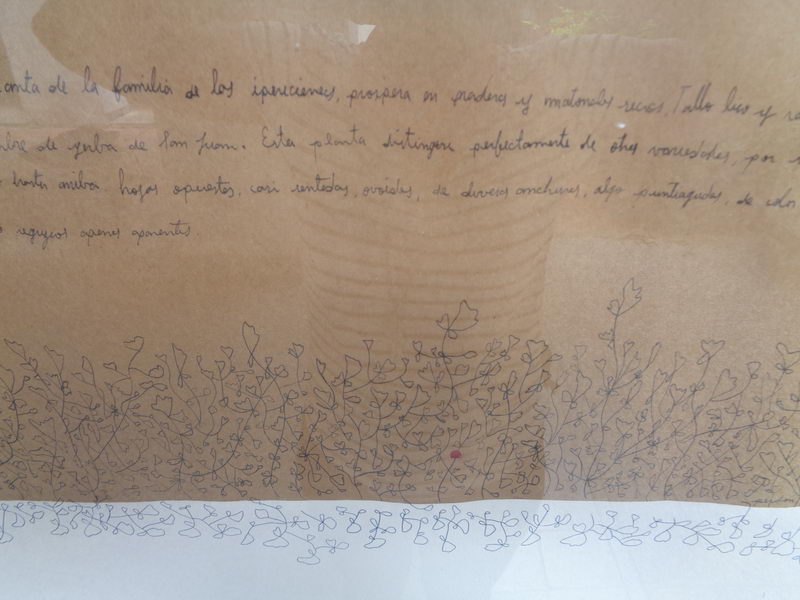 anta de la familia de los ipericineas, prospera en praderas y matorrales secos, Tallo liso y
mbre de yerba de San Juan. Esta planta distingue perfectamente de otras variedades, por
hasta arriba. hojas opuestas, casi sentadas, ovoides, de diversas anchuras, algo puntiagudas, de
apenas aparentes.